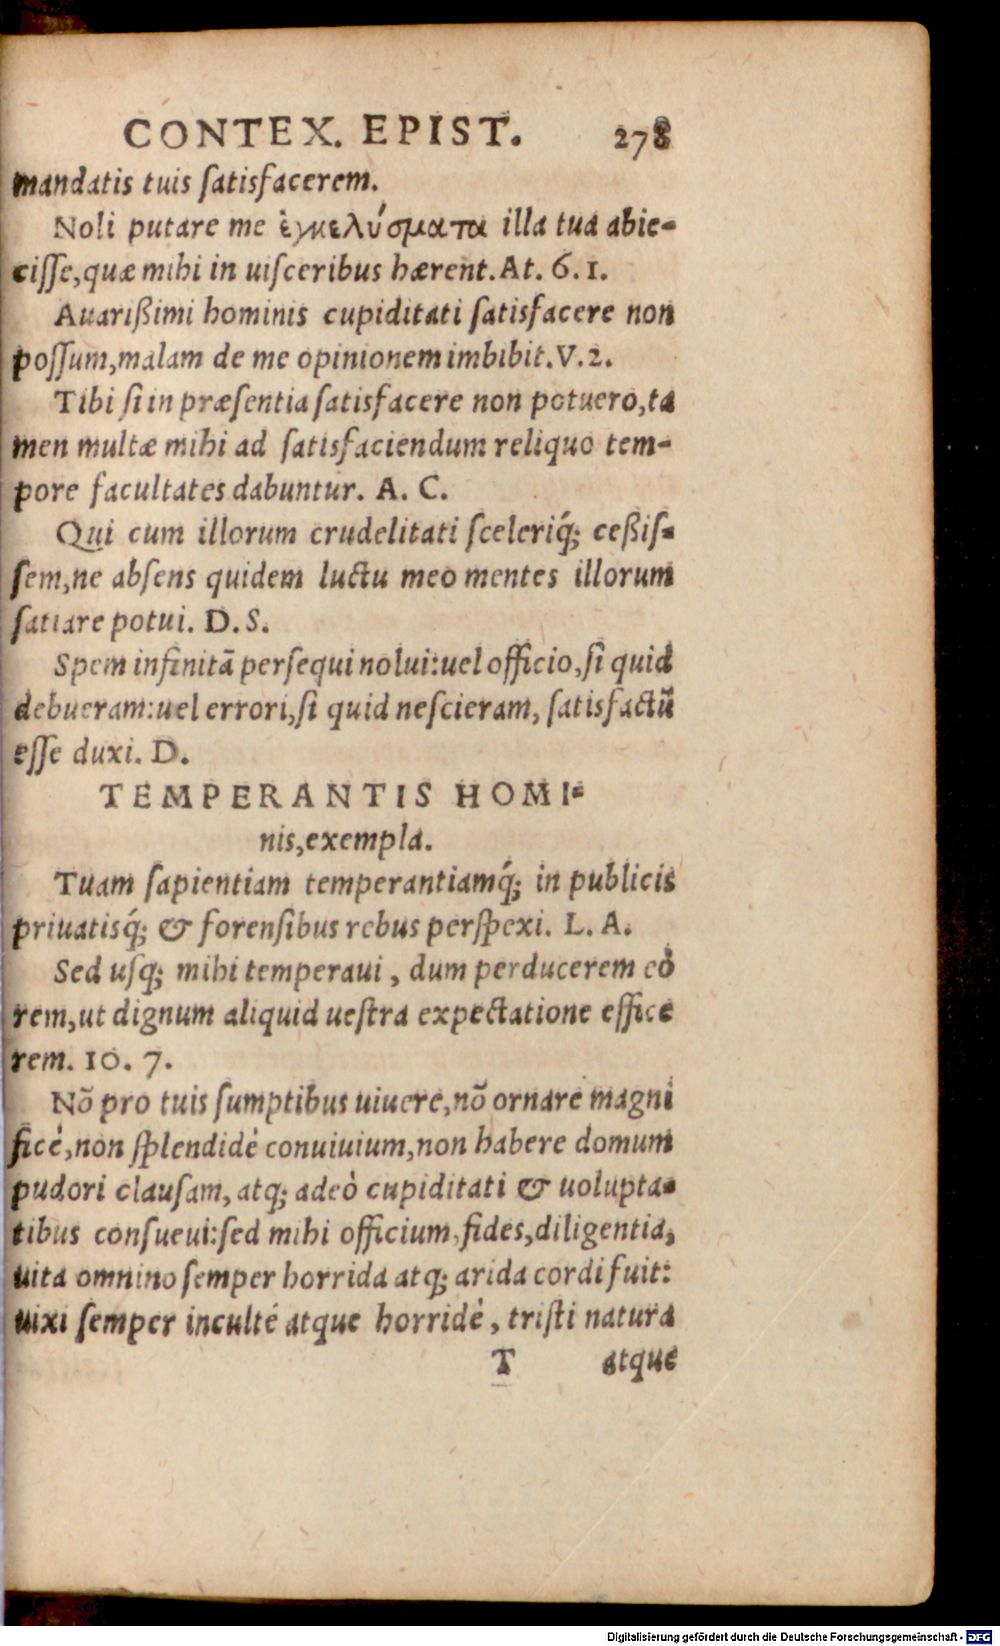 CONTEX. EPIST. 278
mandatis tuis ſatisfacerem.
Noli putare me ἐγκελύσματα illa tua abie-
ciſſe,quæ mihi in uiſceribus hærent.At. 6.1.
Auarißimi hominis cupiditati ſatisfacere non
poſſum,malam de me opinionem imbibit.V.2.
Tibi ſi in præſentia ſatisfacere non potuero,ta
men multæ mihi ad ſatisfaciendum reliquo tem-
pore facultates dabuntur. A. C.
Qui cum illorum crudelitati ſceleriq́; ceßiſ-
ſem,ne abſens quidem luctu meo mentes illorum
ſatiare potui. D. S.
Spem infinitã perſequi nolui:uel officio,ſi quid
debueram:uel errori,ſi quid neſcieram, ſatisfactũ
eſſe duxi. D.
TEMPERANTIS HOMI-
nis,exempla.
Tuam ſapientiam temperantiamq́; in publicis
priuatisq́; & forenſibus rebus perſpexi. L. A.
Sed uſq; mihi temperaui, dum perducerem eò
rem,ut dignum aliquid ueſtra expectatione effice
rem. 10. 7.
Nõ pro tuis ſumptibus uiuere,nõ ornare magni
ficè,non ſplendidè conuiuium,non habere domum
pudori clauſam, atq; adeò cupiditati & uolupta-
tibus conſueui:ſed mihi officium,fides,diligentia,
uita omnino ſemper horrida atq; arida cordi fuit:
uixi ſemper incultè atque horridè, triſti natura
T atque
Digitalisierung gefördert durch die Deutsche Forschungsgemeinschaft - DFG